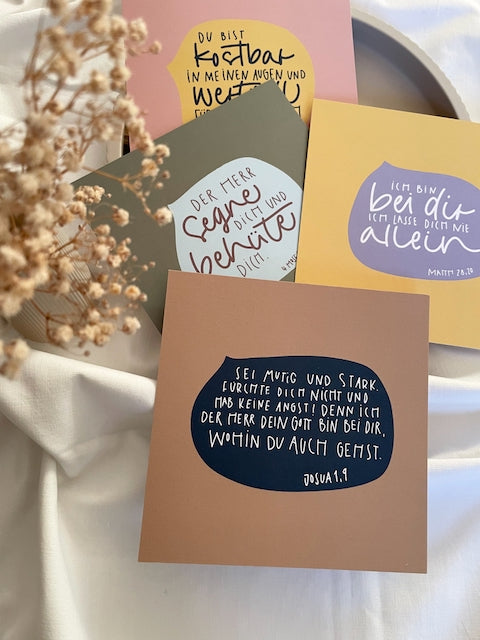 DU BIST
kostbar
IN MEINEN AUGEN UND
DER HERR
segne
DICH UND
behüte
DICH.
ICH BIN
bei dir
ICH LASSE DICH NIE
allein
MATTH 28,20
SEI MUTIG UND STARK.
FÜRCHTE DICH NICHT UND
HAB KEINE ANGST! DENN ICH
DER HERR DEIN GOTT BIN BEI DIR,
WOHIN DU AUCH GEHST.
JOSUA 1,9